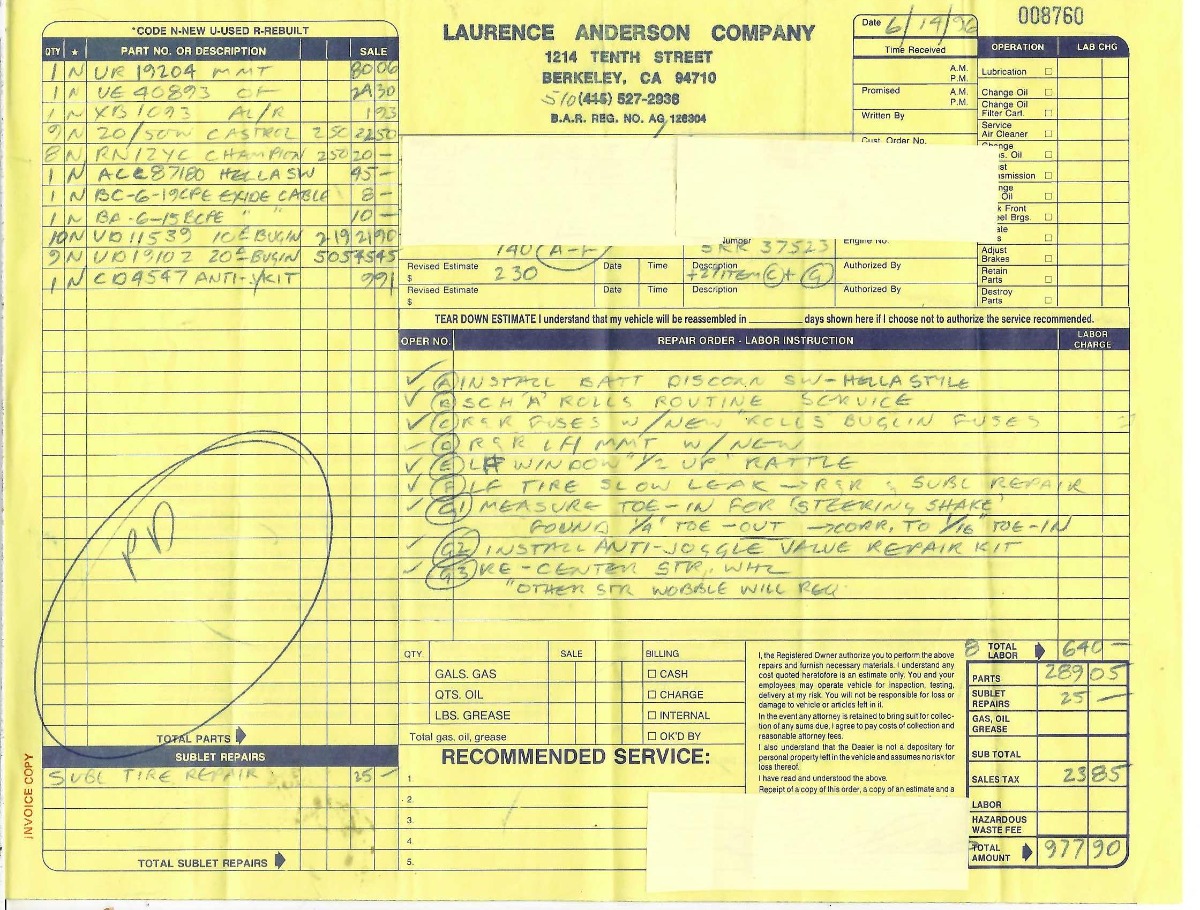 *CODE N-NEW U-USED R-REBUILT
QTY ★ PART NO. OR DESCRIPTION SALE
1 N UR 19204 MMT 80 06
1 N UE 40893 OF 24 30
1 N XB 1093 AL/R 1 93
9 N 20/50W CASTROL 2 50 22 50
8 N RN12YC CHAMPION 2 50 20 —
1 N 87180 HELLA SW 45 —
1 N BC-6-19CPE EXIDE CABLE 8 —
1 N BA-6-15 " " 10 —
10 N UD 11539 10A BUGLN 2 19 21 90
9 N UD 19102 20A BUGLN 5 05 45 45
1 N CD4547 ANTI-J/KIT 9 91
PD
TOTAL PARTS
SUBLET REPAIRS
SUBL TIRE REPAIR 25 —
TOTAL SUBLET REPAIRS
INVOICE COPY
LAURENCE ANDERSON COMPANY
1214 TENTH STREET
BERKELEY, CA 94710
510 (415) 527-2936
B.A.R. REG. NO. AG 126304
008760
Date 6/19/96
Time Received
A.M.
P.M.
Promised
A.M.
P.M.
Written By
Cust. Order No.
OPERATION LAB CHG
Lubrication
Change Oil
Change Oil
Filter Cart.
Service
Air Cleaner
Change
. Oil
Oil
Front
Brgs.
Adjust
Brakes
Retain
Parts
Destroy
Parts
140 (A-F)
SRR 37523
Engine No.
Revised Estimate Date Time Description Authorized By
$ 230 +2/ITEM C + G
Revised Estimate Date Time Description Authorized By
$
TEAR DOWN ESTIMATE I understand that my vehicle will be reassembled in ________ days shown here if I choose not to authorize the service recommended.
OPER NO. REPAIR ORDER - LABOR INSTRUCTION LABOR CHARGE
✓ A INSTALL BATT DISCONN SW-HELLA STYLE
✓ B SCH 'A' ROLLS ROUTINE SERVICE
✓ C R&R FUSES W/NEW 'ROLLS' BUGLIN FUSES
✓ D R&R LH MMT W/NEW
✓ E LF WINDOW "1/2 UP" RATTLE
✓ F LF TIRE SLOW LEAK → R&R & SUBL REPAIR
✓ G1 MEASURE TOE-IN FOR 'STEERING SHAKE'
FOUND 1/4" TOE-OUT → CORR. TO 1/16" TOE-IN
✓ G2 INSTALL ANTI-JOGGLE VALUE REPAIR KIT
✓ G3 RE-CENTER STR. WHL
"OTHER STR WOBBLE WILL REQ.
QTY SALE BILLING
GALS. GAS CASH
QTS. OIL CHARGE
LBS. GREASE INTERNAL
Total gas, oil, grease OK'D BY
RECOMMENDED SERVICE:
1
2.
3.
4.
5.
I, the Registered Owner authorize you to perform the above
repairs and furnish necessary materials. I understand any
cost quoted heretofore is an estimate only. You and your
employees may operate vehicle for inspection, testing,
delivery at my risk. You will not be responsible for loss or
damage to vehicle or articles left in it.
In the event any attorney is retained to bring suit for collec-
tion of any sums due, I agree to pay costs of collection and
reasonable attorney fees.
I also understand that the Dealer is not a depositary for
personal property left in the vehicle and assumes no risk for
loss thereof.
I have read and understood the above.
Receipt of a copy of this order, a copy of an estimate and a
8 TOTAL LABOR 640 —
PARTS 289 05
SUBLET REPAIRS 25 —
GAS, OIL GREASE
SUB TOTAL
SALES TAX 23 85
LABOR
HAZARDOUS WASTE FEE
TOTAL AMOUNT 977 90